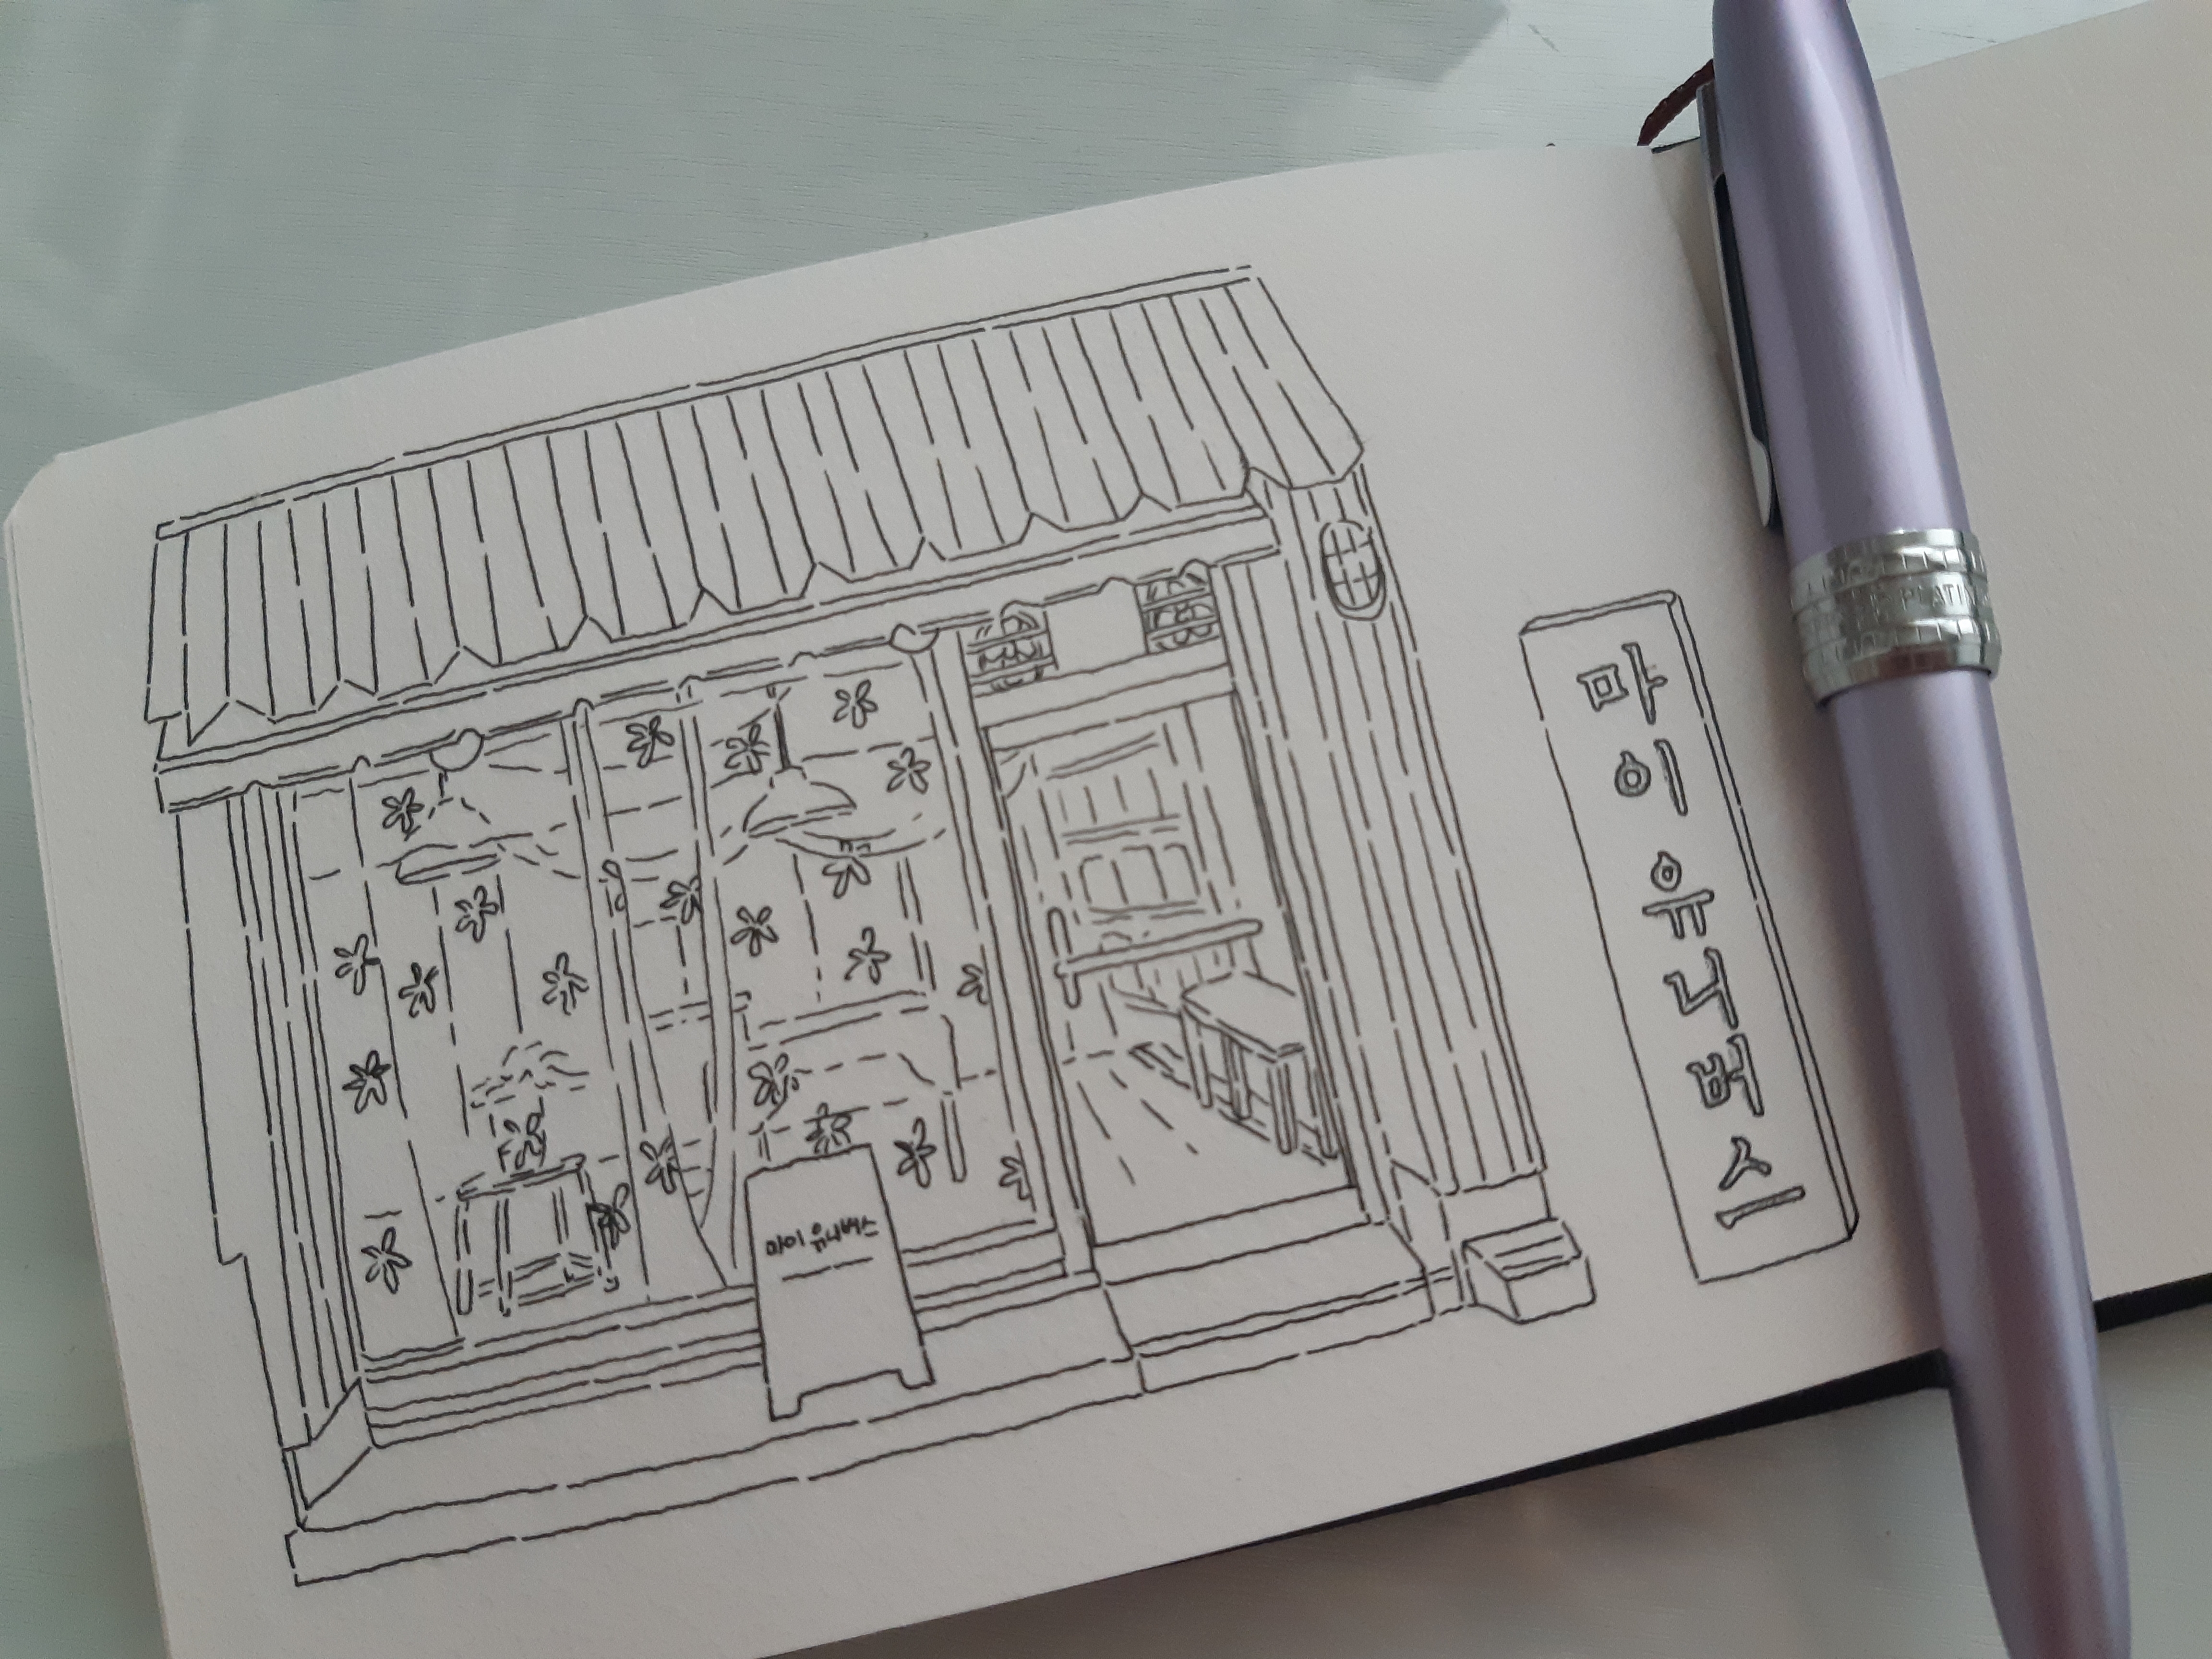 마이 유니버스
마이유니버스
PLATIN